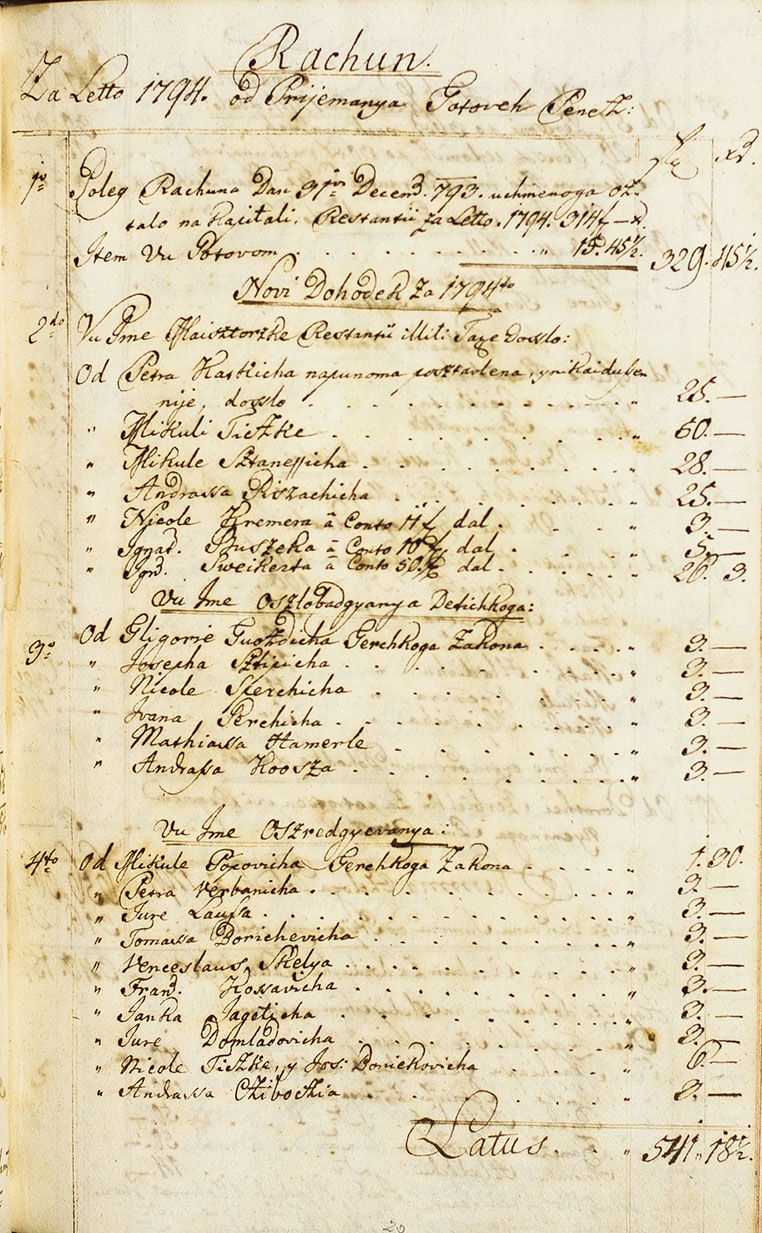 Rachun.
Za Letto 1794. od Prijemanya Gotoveh Penetz:
fl xr.
1mo Poleg Rachuna Dan 31ga Decemb. 793. uchinenoga osz-
talo na Kapitali. Restantii za Letto. 1794. 314 f — x
Item Vu Gotovom . . . . . . " 15. 45½. 329. 45½.
Novi Dohodek Za 1794to
2do Vu Jme Maisztorzke Restantii illiti Taxe doszlo:
Od Petra Kastkicha napunoma posztavlena,
nije, doszlo . . . . . . " 25. —
" Mikuli Tiszke . . . . . . " 50. —
" Mikule Sztanessicha . . . . . . " 28. —
" Andrassa Riszachicha . . . . . . " 25. —
" Nicole Kremera â Conto 11 f dal . . . . " 3. —
" Ignat. Buszeka â Conto 10 f dal . . . . " 5. —
" Ign. Sweikerta â Conto 50. f dal . . . . " 26. 3.
Vu Jme Oszlobadgyanya Detichkoga:
3o Od Gligorie Guozdicha Gerchkoga Zakona . . . . " 3. —
" Josepha Sztipicha . . . . . . " 3. —
" Nicole Sferchicha . . . . . . " 3. —
" Jvana Perchicha . . . . . . " 3. —
" Mathiassa Hamerle . . . . . . " 3. —
" Andrassa Koosza . . . . . . " 3. —
Vu Jme Oszredgyevanya:
4to Od Mikule Popovicha Gerchkoga Zakona . . . . " 1. 30.
" Petra Verbanicha . . . . . . " 3. —
" Jure Laussa . . . . . . " 3. —
" Tomassa Borichevicha . . . . . . " 3. —
" Venceslaus Skelya . . . . . . " 3. —
" Fran. Kossavicha . . . . . . " 3. —
" Janka Jageticha . . . . . . " 3. —
" Jure Domladovicha . . . . . . " 3. —
" Nicole Tiszke, y Jos: Boniekovicha . . . . " 6. —
" Andrassa Czibochia . . . . . . " 3. —
Latus . . " 541 " 18½.
20